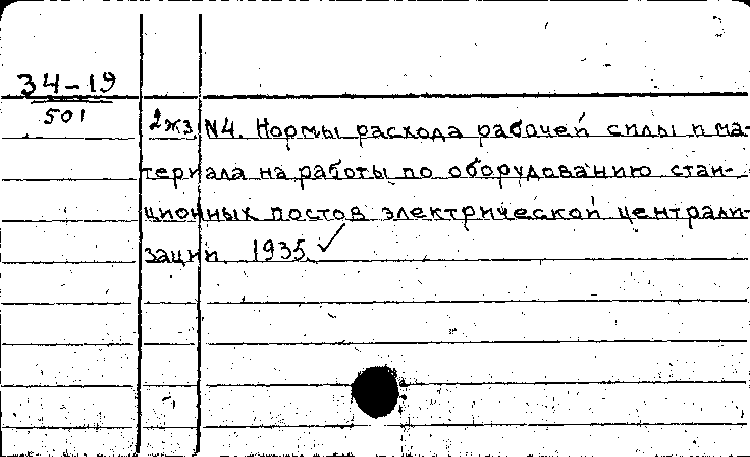 34-19
501
2жз N4. Нормы расхода рабочей силы и ма-
териала на работы по оборудованию стан-
ционных постов электрической централи-
зации 1935 ✓